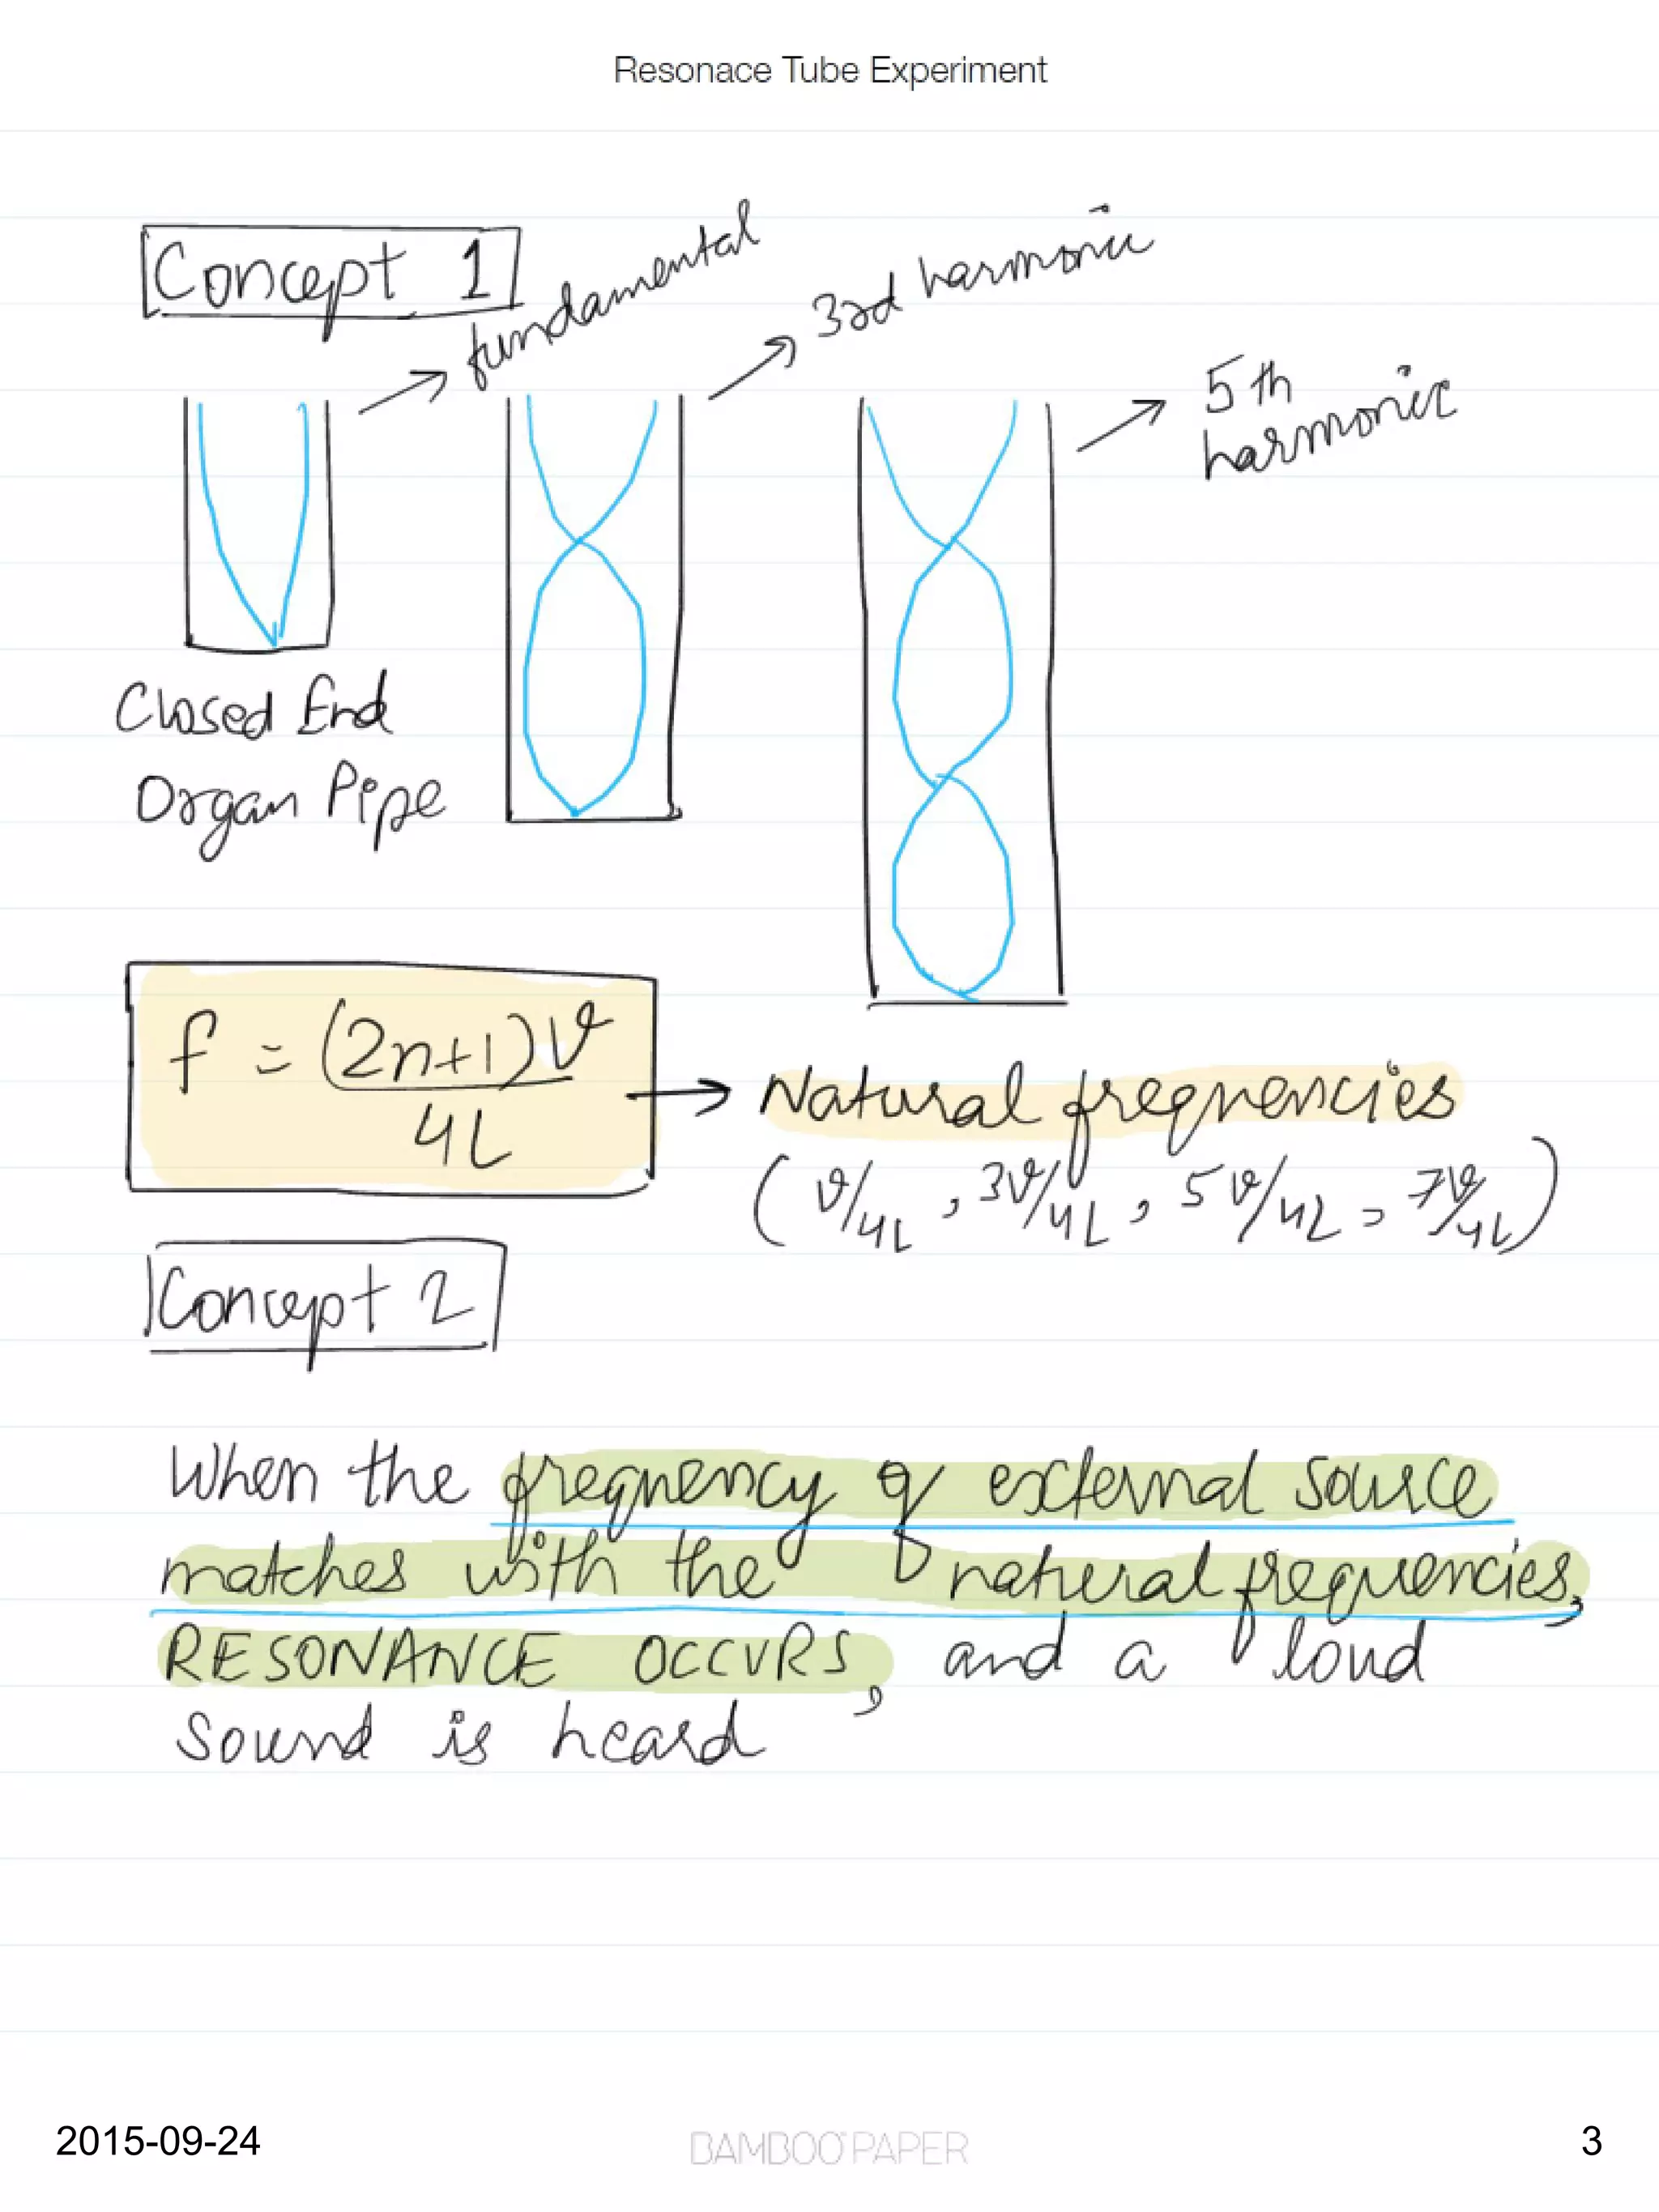 Resonace Tube Experiment
Concept 1
fundamental
3rd harmonic
5th
harmonic
Closed End
Organ Pipe
f = (2n+1)v
4L
Natural frequencies
(v/4L, 3v/4L, 5v/4L, 7v/4L)
Concept 2
When the frequency of external source
matches with the natural frequencies,
RESONANCE OCCURS, and a loud
sound is heard
2015-09-24
BAMBOO PAPER
3